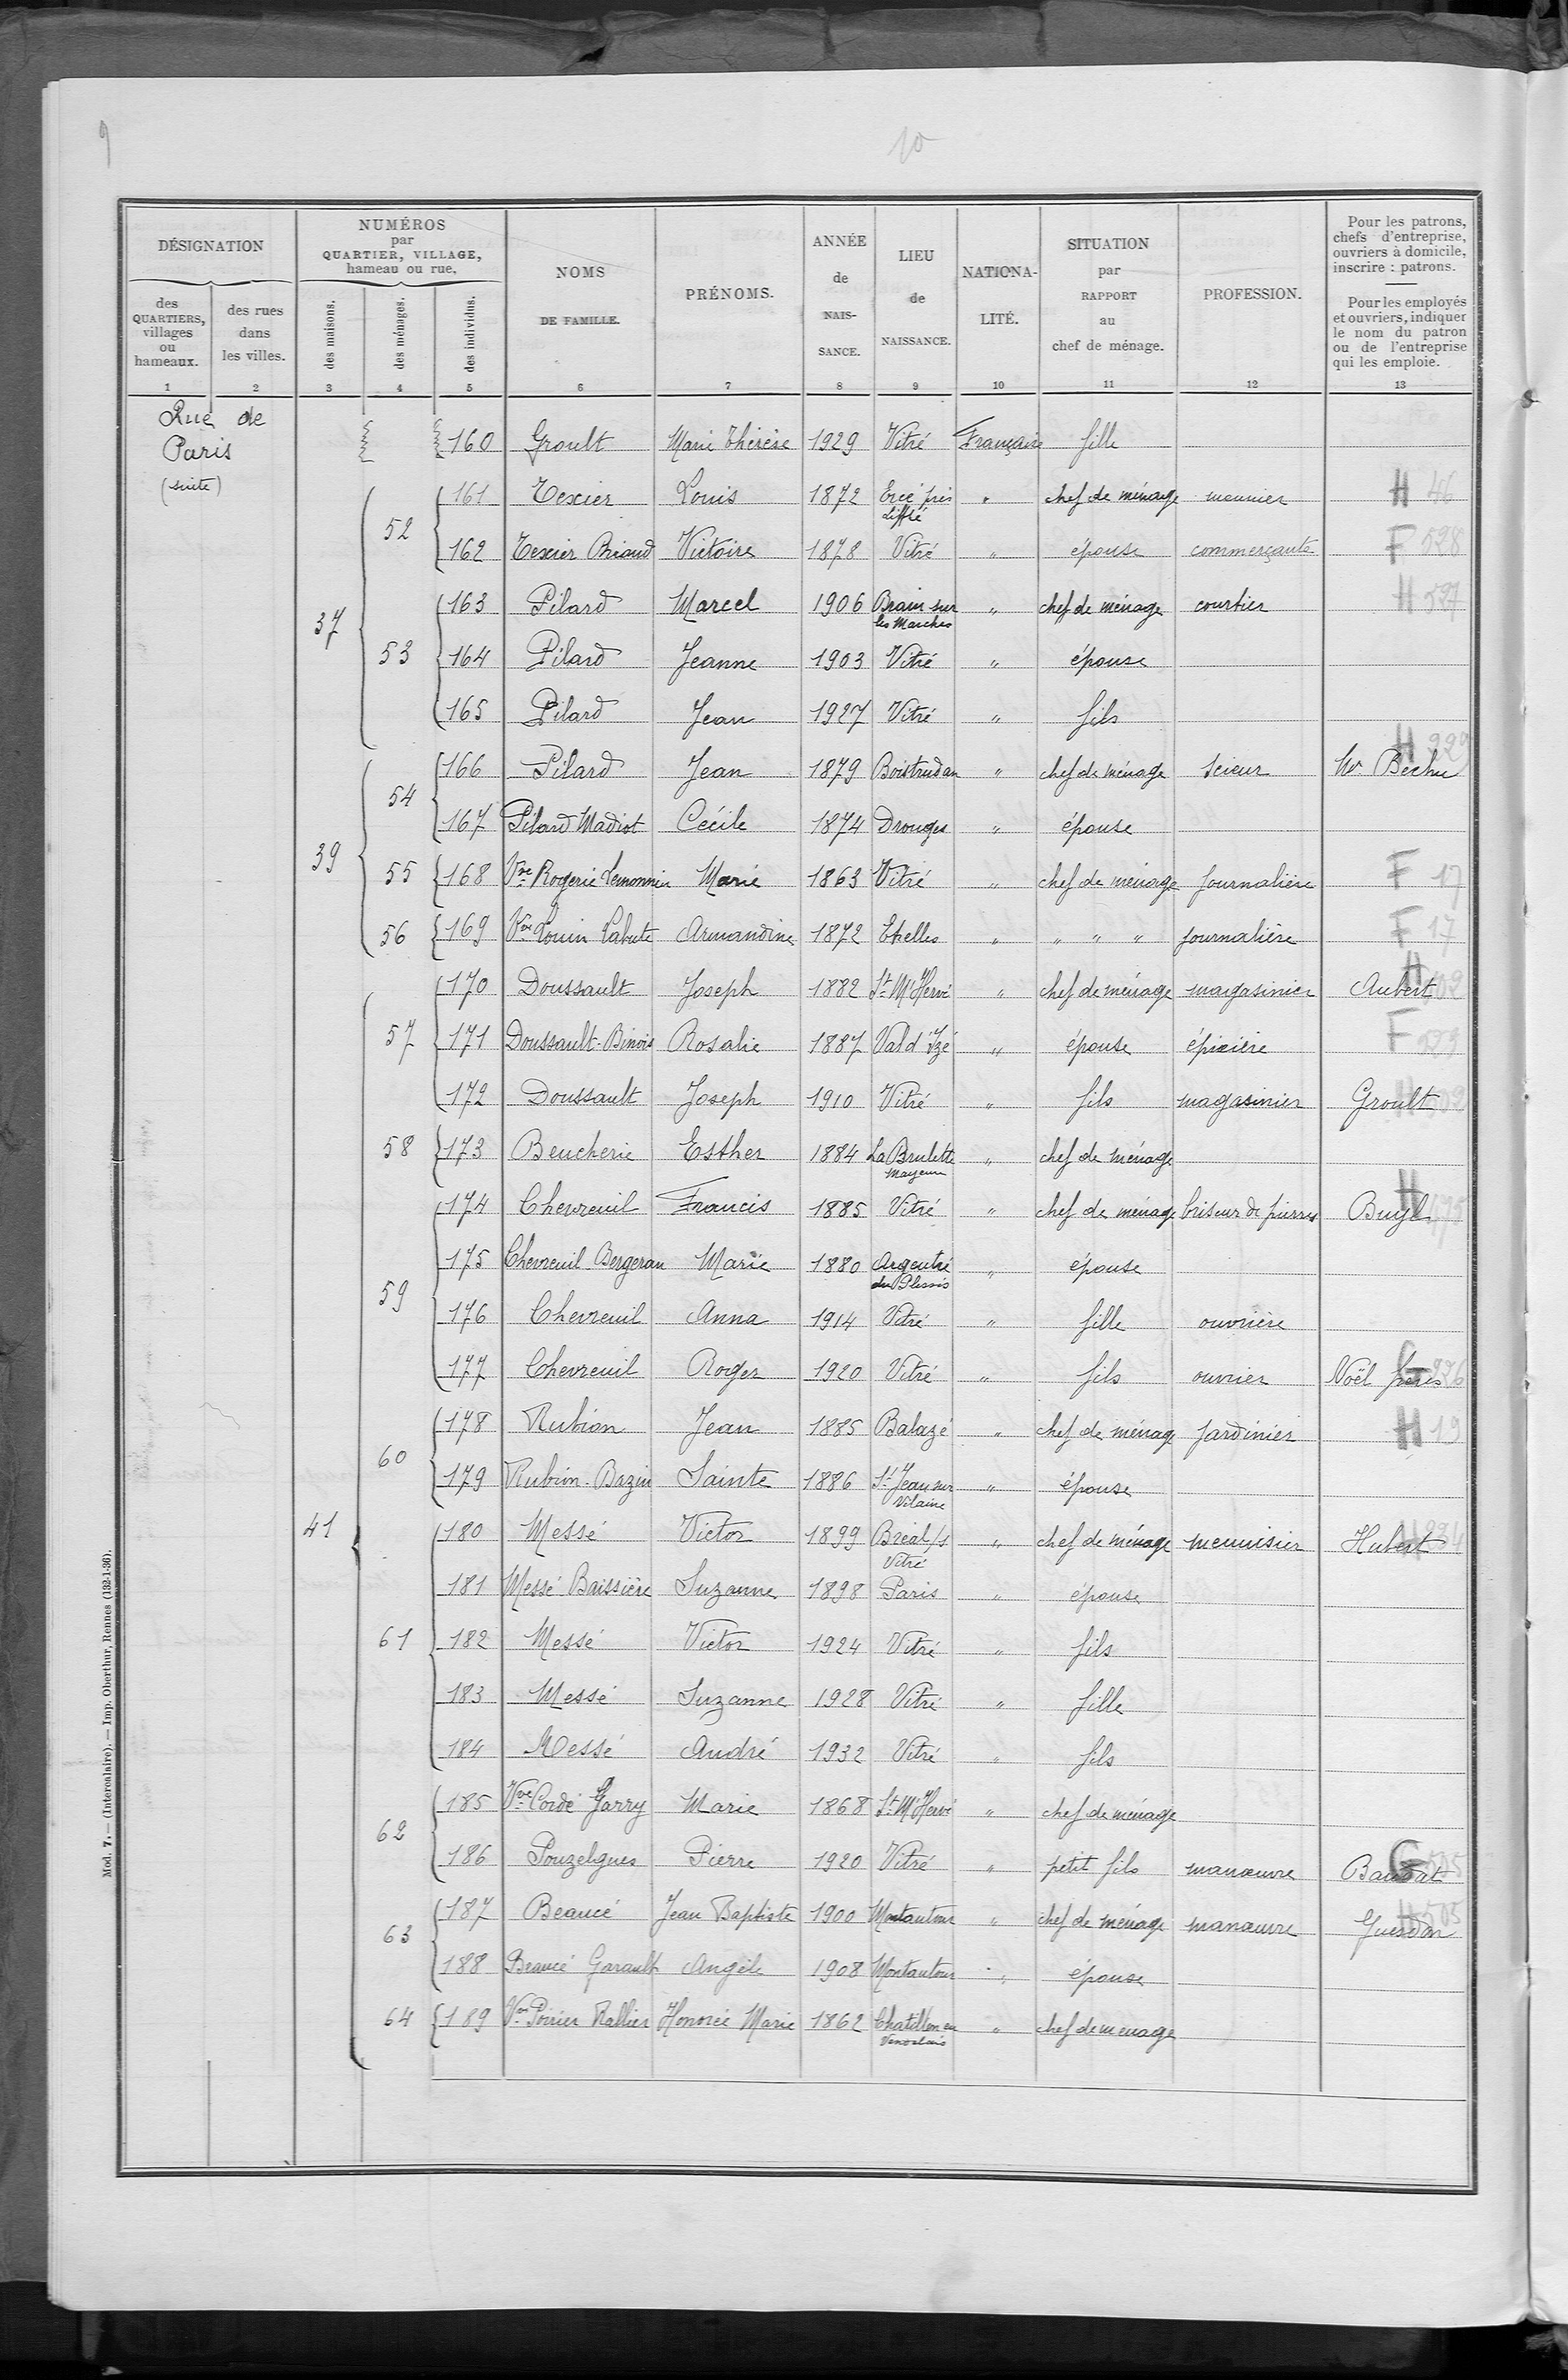 10
DÉSIGNATION
des QUARTIERS, villages ou hameaux.
des rues dans les villes.
NUMÉROS par QUARTIER, VILLAGE, hameau ou rue.
des maisons.
des ménages.
des individus.
NOMS DE FAMILLE.
PRÉNOMS.
ANNÉE de NAISSANCE.
LIEU de NAISSANCE.
NATIONALITÉ.
SITUATION par RAPPORT au chef de ménage.
PROFESSION.
Pour les patrons, chefs d'entreprise, ouvriers à domicile, inscrire : patrons.
Pour les employés et ouvriers, indiquer le nom du patron ou de l'entreprise qui les emploie.
1 2 3 4 5 6 7 8 9 10 11 12 13
Rue de Paris (suite)
160 Groult Marie Thérèse 1929 Vitré Française fille
37 52 161 Texier Louis 1872 Ercé près Liffré " chef de ménage meunier H 46
162 Texier Briand Victoire 1878 Vitré " épouse commerçante F 528
53 163 Pilard Marcel 1906 Brain sur les Marches " chef de ménage courtier H 527
164 Pilard Jeanne 1903 Vitré " épouse
165 Pilard Jean 1927 Vitré " fils
39 54 166 Pilard Jean 1879 Boistrudan " chef de ménage scieur Bechu H 229
167 Pilard Madiot Cécile 1874 Drouges " épouse
55 168 Vve Rogerie Lemonnier Marie 1863 Vitré " chef de ménage journalière F 17
56 169 Vve Louin Armandine 1872 Ethelles " " " " journalière F 17
57 170 Doussault Joseph 1882 St M'Hervé " chef de ménage magasinier Aubert H
171 Doussault-Binois Rosalie 1887 Val d'Izé " épouse épicière F
172 Doussault Joseph 1910 Vitré " fils magasinier Groult
58 173 Beucherie Esther 1884 La Brulette Mayenne " chef de ménage
41 59 174 Chevreuil Francis 1885 Vitré " chef de ménage briseur de pierres Buyl H
175 Chevreuil Bergeran Marie 1880 Argentré du Plessis " épouse
176 Chevreuil Anna 1914 Vitré " fille ouvrière
177 Chevreuil Roger 1920 Vitré " fils ouvrier Noël frères G
60 178 Rubion Jean 1885 Balazé " chef de ménage jardinier H 19
179 Rubion-Bazin Sainte 1886 St Jean sur Vilaine " épouse
61 180 Messé Victor 1899 Bréal/s Vitré " chef de ménage menuisier Hubert
181 Messé Baissière Suzanne 1898 Paris " épouse
182 Messé Victor 1924 Vitré " fils
183 Messé Suzanne 1928 Vitré " fille
184 Messé André 1932 Vitré " fils
62 185 Vve Cordé Garry Marie 1868 St M'Hervé " chef de ménage
186 Pouzelgues Pierre 1920 Vitré " petit fils manœuvre Baudat G
63 187 Beaucé Jean Baptiste 1900 Montautour " chef de ménage manœuvre Guesdon H 505
188 Beaucé Garault Angèle 1908 Montautour " épouse
64 189 Vve Poirier Rallier Honorée Marie 1862 Chatillon en Vendelais " chef de menage
Mod. 7. — (Intercalaire). — Imp. Oberthur, Rennes (132-1-36).